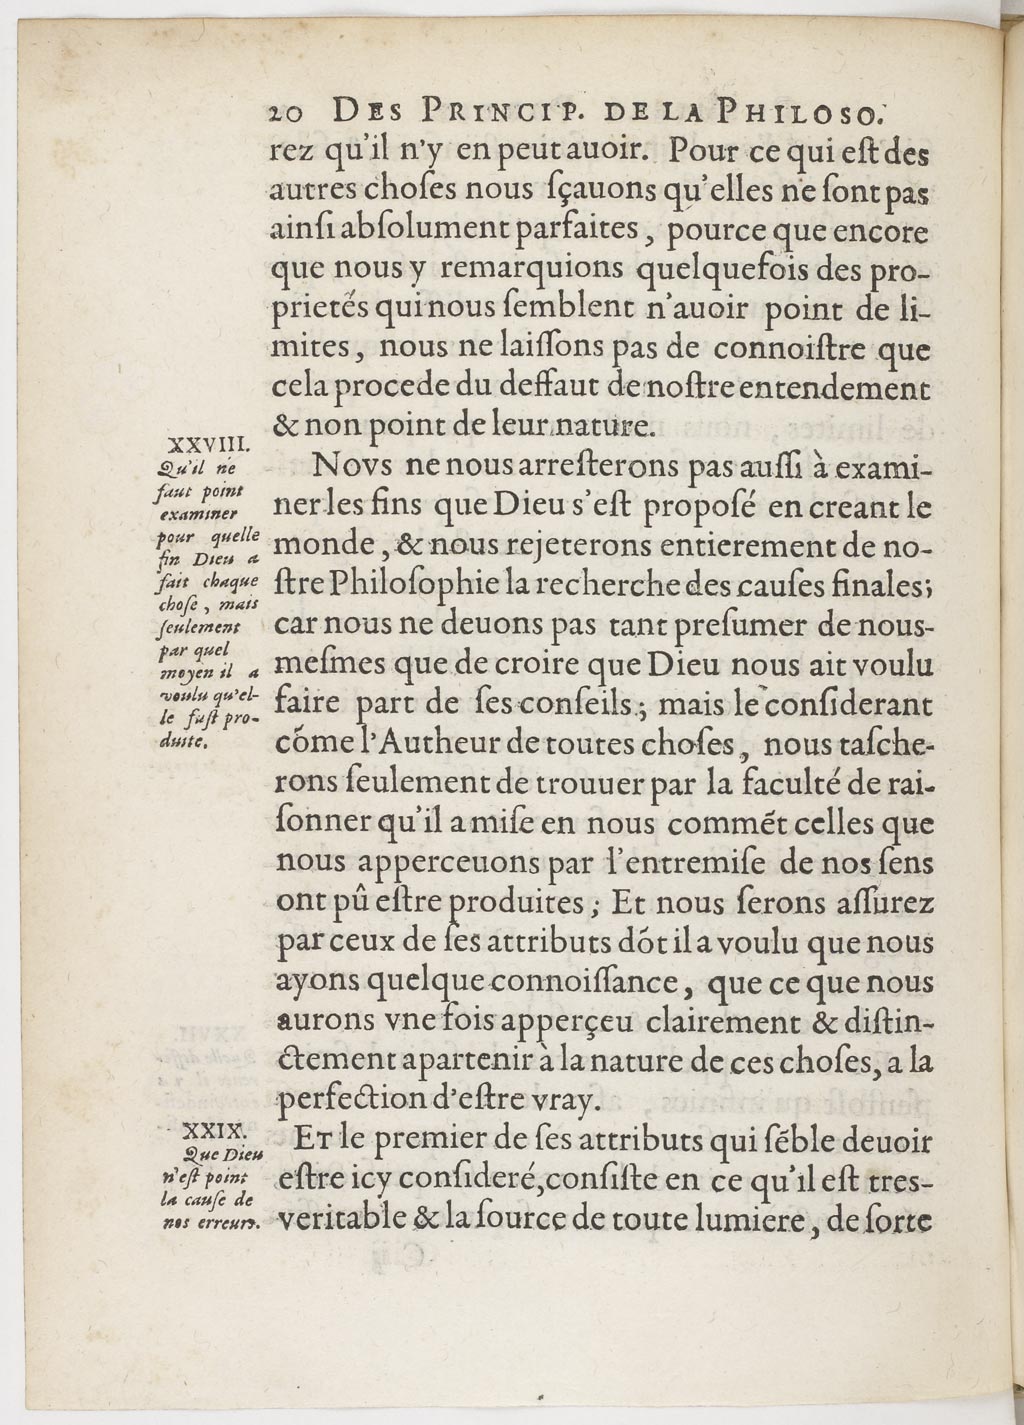 20 DES PRINCIP. DE LA PHILOSO.
rez qu'il n'y en peut auoir. Pour ce qui eſt des
autres choſes nous ſçauons qu'elles ne ſont pas
ainſi abſolument parfaites, pource que encore
que nous y remarquions quelquefois des pro-
prietés qui nous ſemblent n'auoir point de li-
mites, nous ne laiſſons pas de connoiſtre que
cela procede du deffaut de noſtre entendement
& non point de leur nature.
XXVIII.
Qu'il ne
faut point
examiner
pour quelle
fin Dieu a
fait chaque
choſe, mais
ſeulement
par quel
moyen il a
voulu qu'el-
le fuſt pro-
duite.
NOVS ne nous arreſterons pas auſſi à exami-
ner les fins que Dieu s'eſt propoſé en creant le
monde, & nous rejeterons entierement de no-
ſtre Philoſophie la recherche des cauſes finales;
car nous ne deuons pas tant preſumer de nous-
meſmes que de croire que Dieu nous ait voulu
faire part de ſes conſeils; mais le conſiderant
cõme l'Autheur de toutes choſes, nous taſche-
rons ſeulement de trouuer par la faculté de rai-
ſonner qu'il a miſe en nous commẽt celles que
nous apperceuons par l'entremiſe de nos ſens
ont pû eſtre produites; Et nous ſerons aſſurez
par ceux de ſes attributs dõt il a voulu que nous
ayons quelque connoiſſance, que ce que nous
aurons vne fois apperçeu clairement & diſtin-
ctement apartenir à la nature de ces choſes, a la
perfection d'eſtre vray.
XXIX.
Que Dieu
n'eſt point
la cauſe de
nos erreurs.
ET le premier de ſes attributs qui ſẽble deuoir
eſtre icy conſideré, conſiſte en ce qu'il eſt tres-
veritable & la ſource de toute lumiere, de ſorte